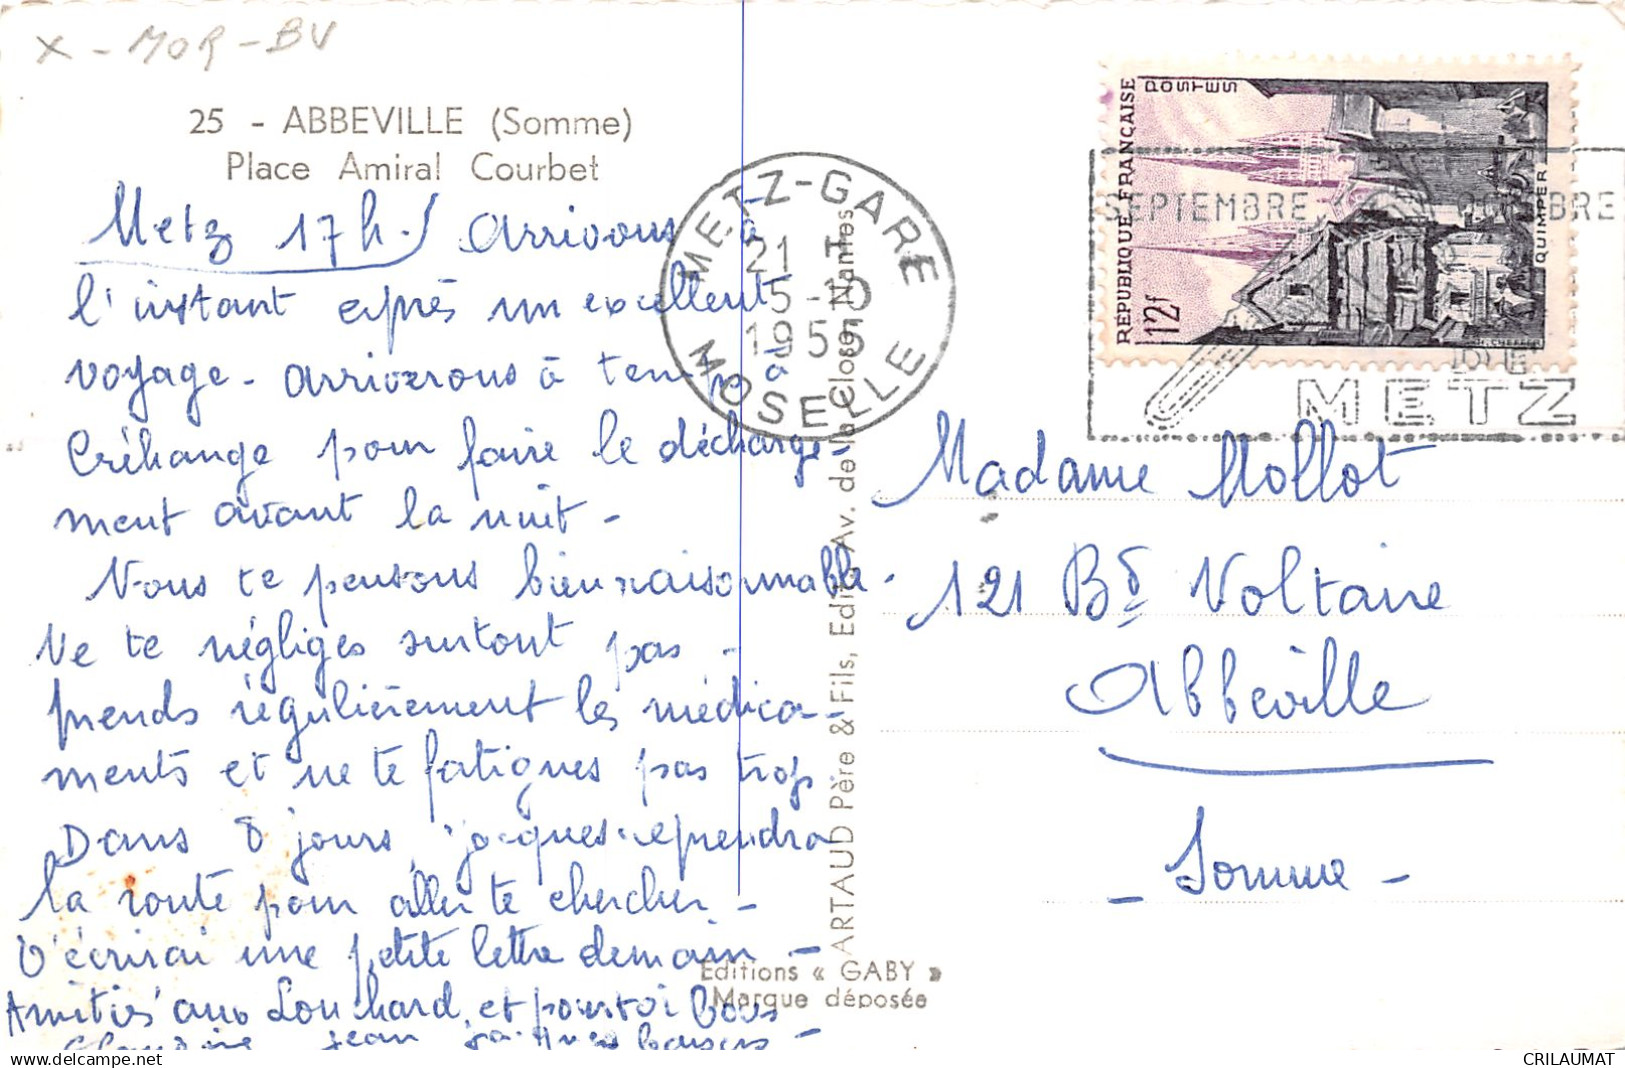 X - MOR - BV
25 - ABBEVILLE (Somme)
Place Amiral Courbet
Metz 17h. Arrivons à
l'instant après un excellent
voyage - arriverons à temps à
Créhange pour faire le décharge-
ment avant la nuit -
Nous te pensons bien raisonnable.
Ne te négliges surtout pas -
prends régulièrement les médica-
ments et ne te fatigues pas trop
Dans 8 jours, Jacques reprendra
la route pour aller te chercher -
T'écrirai une petite lettre demain -
Amitiés aux Louchard, et pour toi bons
baisers -
Jean
METZ-GARE
21 H
5-10
1955
MOSELLE
RÉPUBLIQUE FRANÇAISE
POSTES
12f
QUIMPER
SEPTEMBRE
OCTOBRE
DE
METZ
Madame Mollot
121 Bd Voltaire
Abbeville
- Somme -
ARTAUD Père & Fils, Edit., Av. de la Close, Nantes
Editions « GABY »
Marque déposée
www.delcampe.net
CRILAUMAT